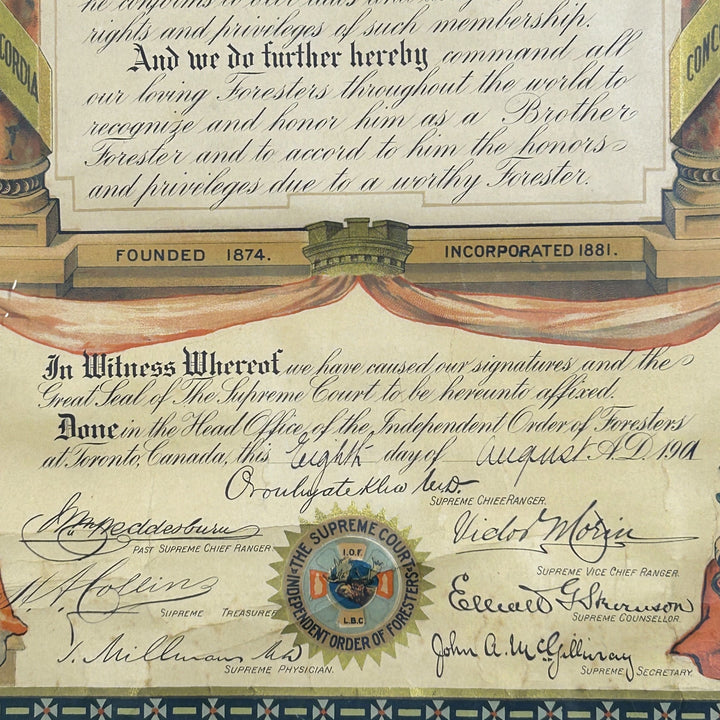 he conforms to our laws and
rights and privileges of such membership.
And we do further hereby command all
our loving Foresters throughout the world to
recognize and honor him as a Brother
Forester and to accord to him the honors
and privileges due to a worthy Forester.
CORDIA
CONC
FOUNDED 1874.
INCORPORATED 1881.
In Witness Whereof we have caused our signatures and the
Great Seal of The Supreme Court to be hereunto affixed.
Done in the Head Office of the Independent Order of Foresters
at Toronto, Canada, this Eighth day of August A.D. 190
Oronhyatekha M.D.
SUPREME CHIEF RANGER.
PAST SUPREME CHIEF RANGER
Victor Morin
SUPREME VICE CHIEF RANGER.
Collins
SUPREME TREASURER
Elliott G. Stevenson
SUPREME COUNSELLOR.
T. Millman MD
SUPREME PHYSICIAN.
John A. McGillivray
SUPREME SECRETARY.
THE SUPREME COURT
INDEPENDENT ORDER OF FORESTERS
I.O.F.
L.B.C